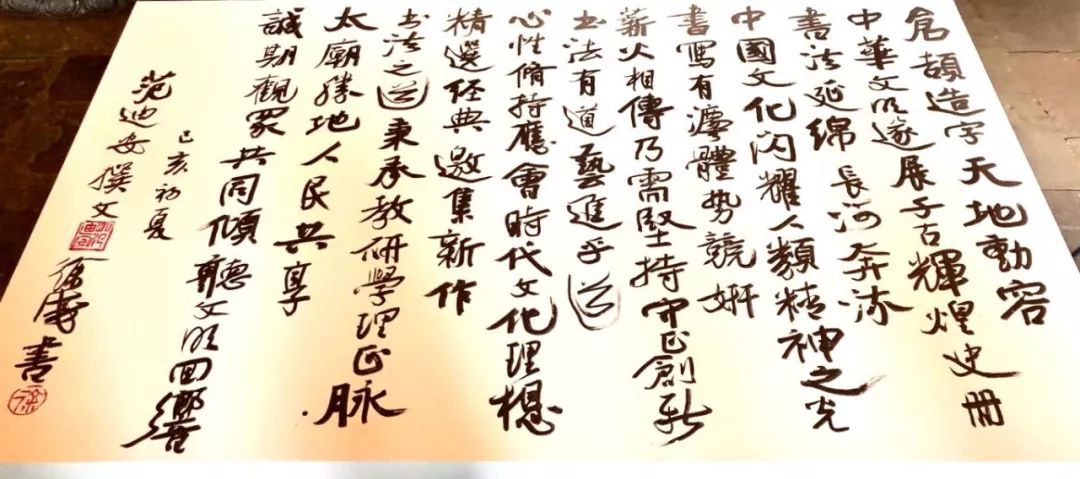 倉頡造字天地動容
中華文明遂展千古輝煌史冊
書法延綿長河奔流
中國文化閃耀人類精神之光
書寫有灋體勢競妍
薪火相傳乃需堅持守正創新
书法有道藝進乎道
心性脩持應會時代文化理想
精選經典邀集新作
书法之道秉承教研學理正脉
太廟勝地人民共享
誠期觀眾共同傾聽文明回響
己亥初夏
范迪安撰文
書